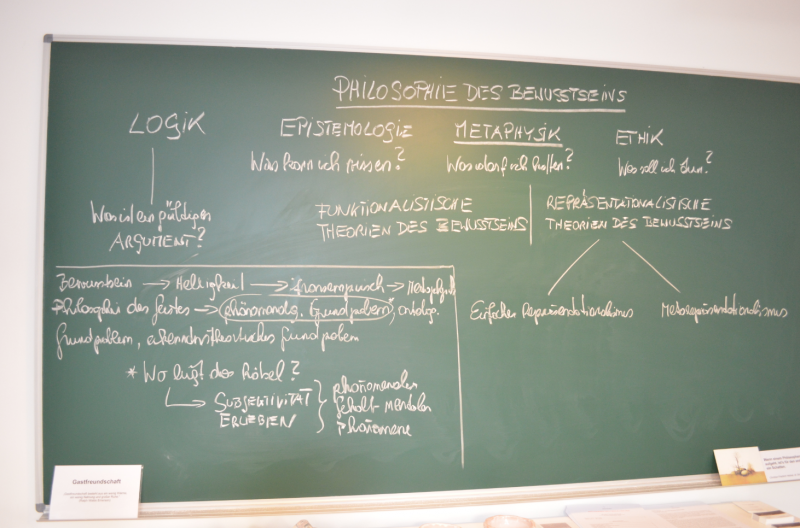 PHILOSOPHIE DES BEWUSSTSEINS
LOGIK
EPISTEMOLOGIE
METAPHYSIK
ETHIK
Was kann ich wissen?
Was darf ich hoffen?
Was soll ich tun?
Was ist ein gültiges
ARGUMENT?
FUNKTIONALISTISCHE
THEORIEN DES BEWUSSTSEINS
REPRÄSENTATIONALISTISCHE
THEORIEN DES BEWUSSTSEINS
Einfacher Repräsentationalismus
Metarepräsentationalismus
Bewusstsein → Helligkeit → →
Philosophie des Geistes → phänomenolog. Grundproblem,
Grundproblem, erkenntnistheoretisches Grundproblem
* Wo liegt das Rätsel?
SUBJEKTIVITÄT
ERLEBEN
phänomenaler
Gehalt mentaler
Phänomene
Gastfreundschaft